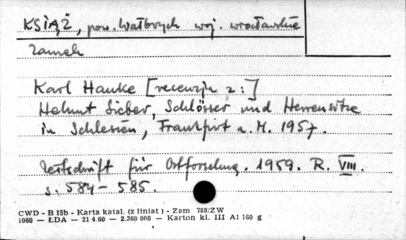 KSIĄŻ, pow. Wałbrzych woj. wrocławskie
zamek
Karl Hanke [recenzja z:]
Helmut Sieber, Schlösser und Herrensitze
in Schlesien, Frankfurt a. M. 1957.
Zeitschrift für Ostforschung. 1959. R. VIII.
s. 584 - 585.
CWD - B 15b - Karta katal. (z liniat) - Zam 768/ZW
1060 - ŁDA - 21 4.60 - 2.360 000 - Karton kl. III A1 160 g